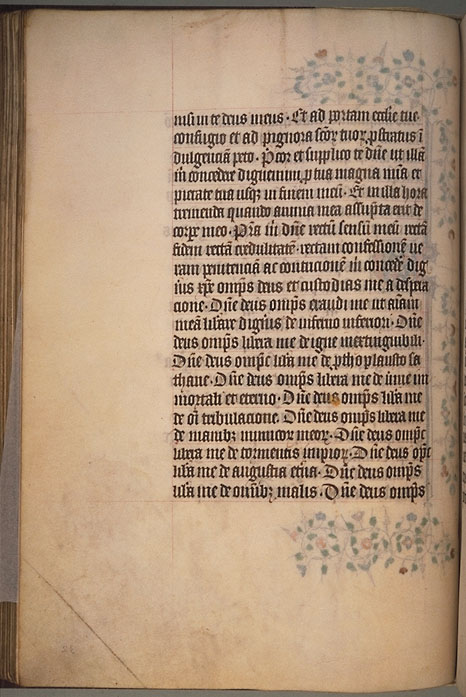 nisi in te deus meus. Et ad portam ecclie tue
confugio et ad pignora scōꝝ tuoꝝ ꝓstratus ī
dulgenciā peto. P̄cor et supplico te dn̄e ut illā
m̄ concedere digneris in ꝓ tua magna mīa et
pietate tua usqꝫ in finem meū. Et in illa hora
tremenda quando anima mea assūpta erit de
corꝑe meo. Da m̄ dn̄e rectū sensū meū rectā
fidem rectā credulitatē. rectam confessionē ue
ram penitenciā ac contricionē m̄ concede dig
īus xp̄e omp̄s deus et custodias me a despera
cione. Dn̄e deus omp̄s exaudi me ut aīam
meā lib̄are digīus de inferno inferiori. Dn̄e
deus omp̄s libera me de igne inextinguibili.
Dn̄e deus omp̄c lib̄a me de sa
thane. Dn̄e deus omp̄s libera me de u̇me im
mortali et eterno. Dn̄e deus omp̄s lib̄a me
de oī tribulacione. Dn̄e deus omp̄s libera me
de manibꝫ inimicoꝝ meoꝝ. Dn̄e deus omp̄c
libera me de tormentis impioꝝ. Dn̄e deus op̄c
lib̄a me de angustia et̄na. Dn̄e deus omp̄s
lib̄a me de omībꝫ malis. Dn̄e deus omp̄s